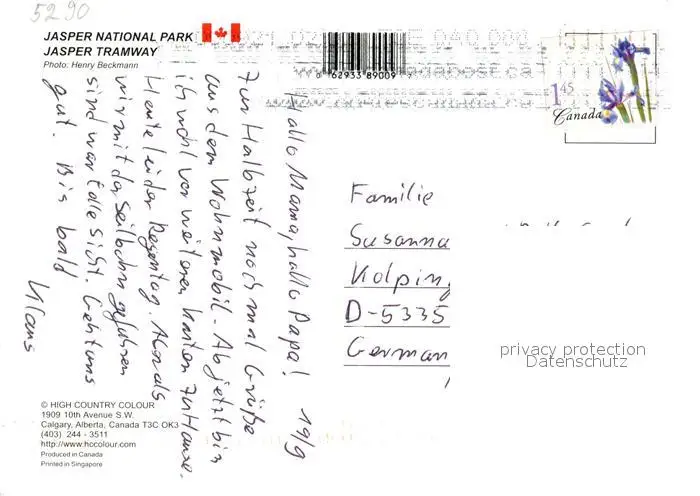 5290
JASPER NATIONAL PARK
JASPER TRAMWAY
Photo: Henry Beckmann
0 62933 89009 7
1.45
Canada
Hallo Mama, hallo Papa! 19/9
Zur Halbzeit nochmal Grüße
aus dem Wohnmobil. Ab jetzt bin
ich wohl vor weiteren Karten zu Hause.
Heute leider Regentag. Als
wir mit der Seilbahn gefahren
sind war tolle Sicht. Geht uns
gut. Bis bald
Klaus
Familie
Susanna
Kolping
D-5335
German
privacy protection
Datenschutz
© HIGH COUNTRY COLOUR
1909 10th Avenue S.W.
Calgary, Alberta, Canada T3C OK3
(403) 244 - 3511
http://www.hccolour.com
Produced in Canada
Printed in Singapore